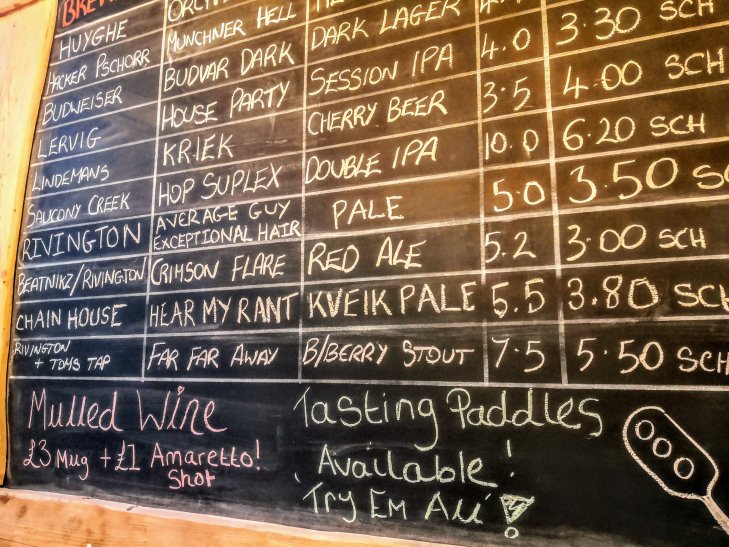 BREW
HUYGHE
HACKER PSCHORR MUNCHNER HELL
BUDWEISER BUDVAR DARK DARK LAGER
LERVIG HOUSE PARTY SESSION IPA 4.0 3.30 SCH
LINDEMANS KRIEK CHERRY BEER 3.5 4.00 SCH
SAUCONY CREEK HOP SUPLEX DOUBLE IPA 10.0 6.20 SCH
RIVINGTON AVERAGE GUY EXCEPTIONAL HAIR PALE 5.0 3.50 SC
BEATNIKZ/RIVINGTON CRIMSON FLARE RED ALE 5.2 3.00 SCH
CHAIN HOUSE HEAR MY RANT KVEIK PALE 5.5 3.80 SCH
RIVINGTON + TDMS TAP FAR FAR AWAY B/BERRY STOUT 7.5 5.50 SCH
Mulled Wine
£3 Mug + £1 Amaretto!
Shot
Tasting Paddles
Available!
Try Em All!